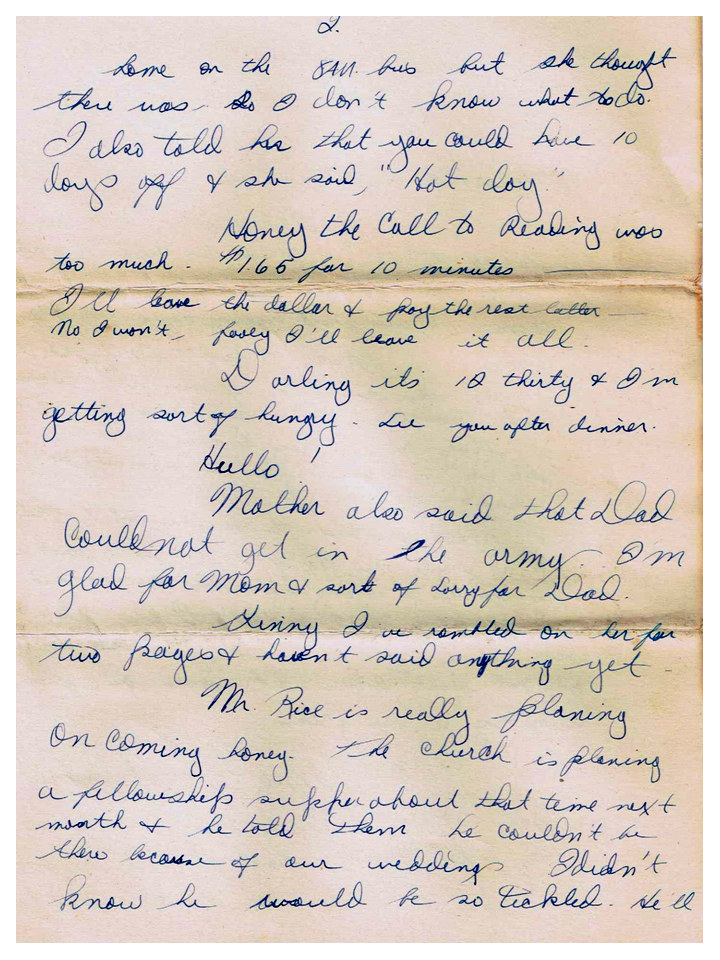 2.
home on the 8 AM. bus but she thought
there was. So I don't know what to do.
I also told her that you could have 10
days off & she said, "Hot dog."
Honey the Call to Reading was
too much. $1.65 for 10 minutes
I'll leave the dollar & pay the rest latter
No I won't, fooey I'll leave it all.
Darling its 12 thirty & I'm
getting sort of hungry. See you after dinner.
Hello!
Mother also said that Dad
Could not get in the army. I'm
glad for Mom & sort of sorry for Dad.
Kenny I've rambled on her for
two pages & haven't said anything yet
Mr. Rice is really planing
On Coming honey. The church is planing
a fellowship supper about that time next
month & he told them he couldn't be
there because of our wedding. I didn't
know he would be so tickled. He'll